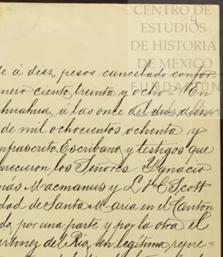 CENTRO DE
ESTUDIOS
DE HISTORIA
DE MEXICO
4
de á diez pesos cancelado confor
mero ciento treinta y ocho. En
huahua, á las once del dia
de mil ochocientos ochenta y
infrascrito Escribano y testigos que
parecieron los Señores Ygnacio
mas Macmanus y L. H. Scott
dad de Santa Maria en el Canton
do, por una parte y por la otra el
del Rio, en legitima repre